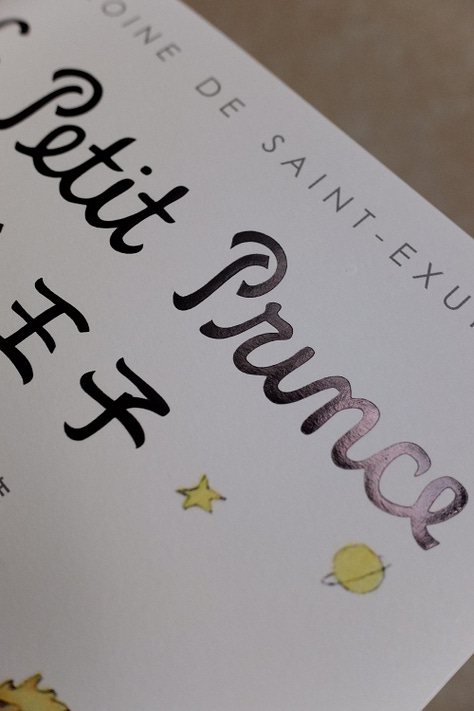 OINE DE SAINT-EXU
Petit Prince
王子